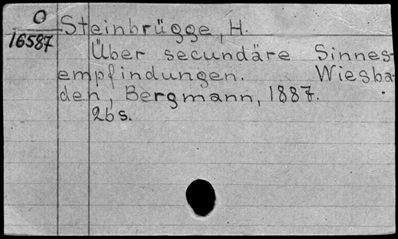 O
16587
Steinbrügge, H.
Über secundäre Sinnes-
empfindungen. Wiesba-
den, Bergmann, 1887.
2bs.